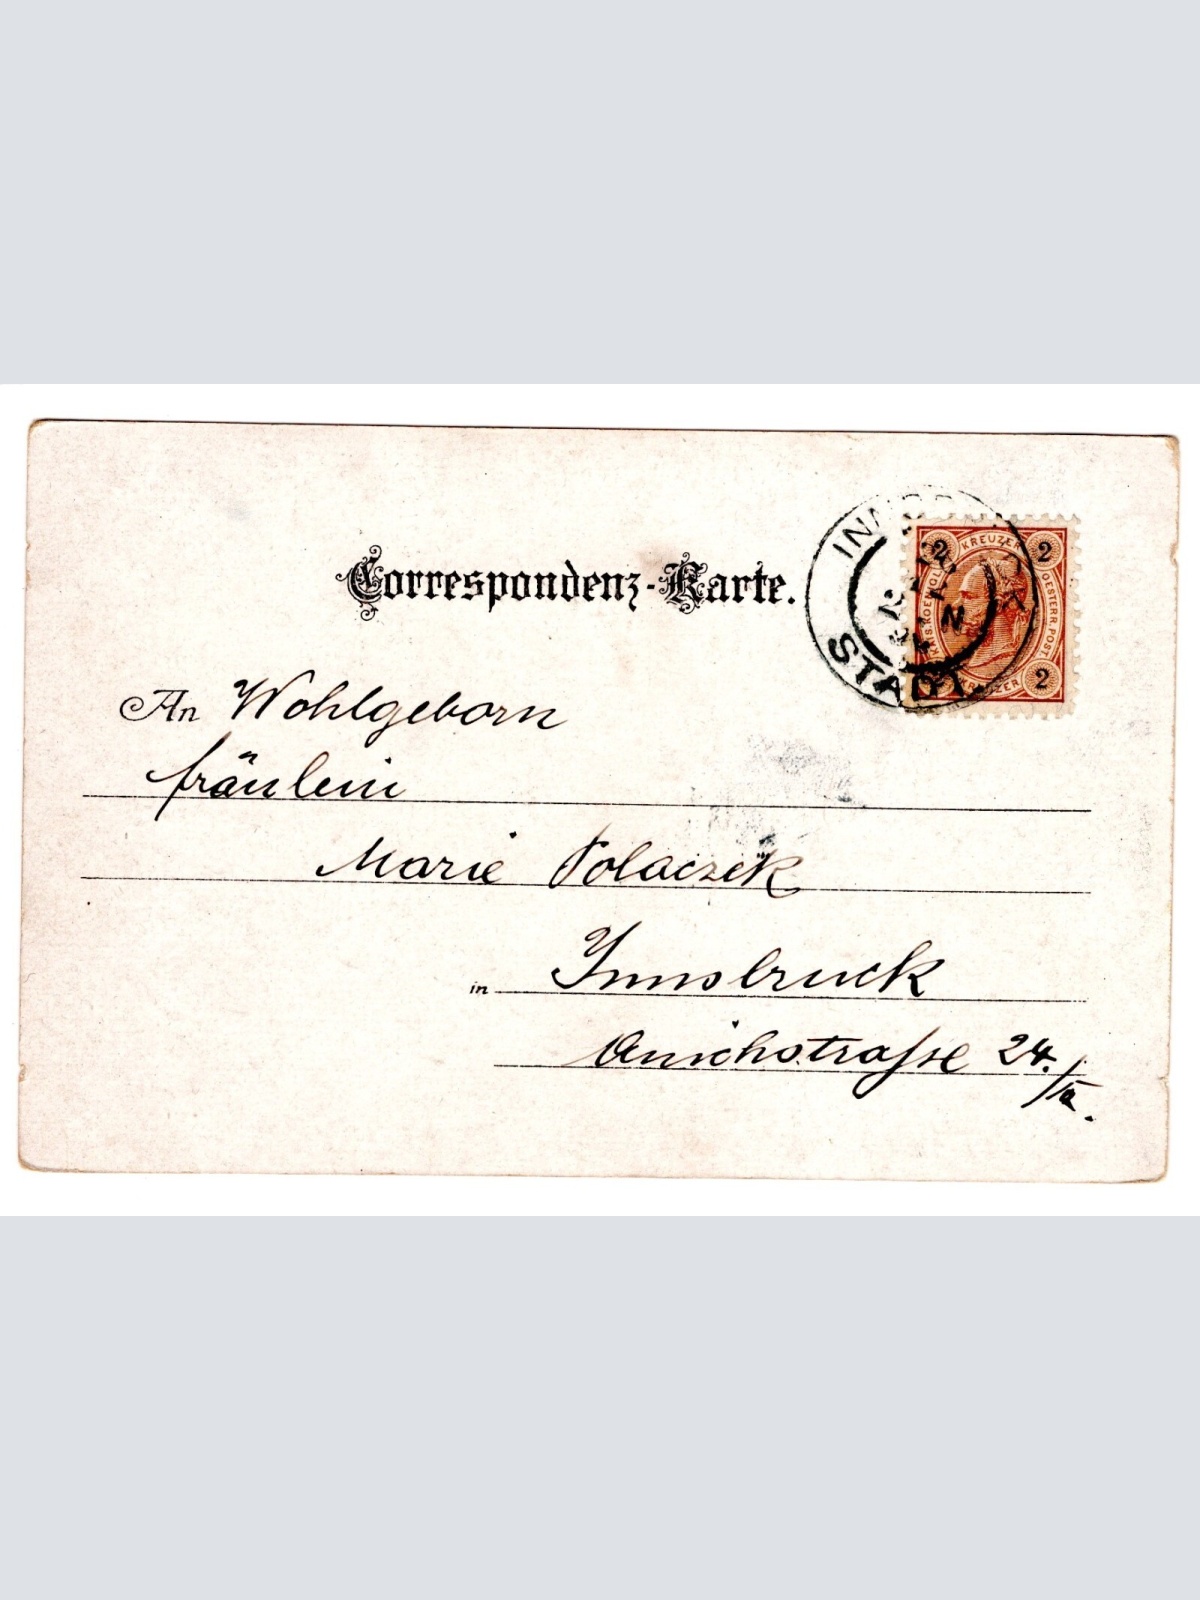 Correspondenz-Karte.
INN
STADT
2 KREUZER 2
KAIS. KOENIGL.
OESTERR. POST
KREUZER 2
An Wohlgeborn
fräulein
Marie Polaczek
in Innsbruck
Anichstrasse 24./